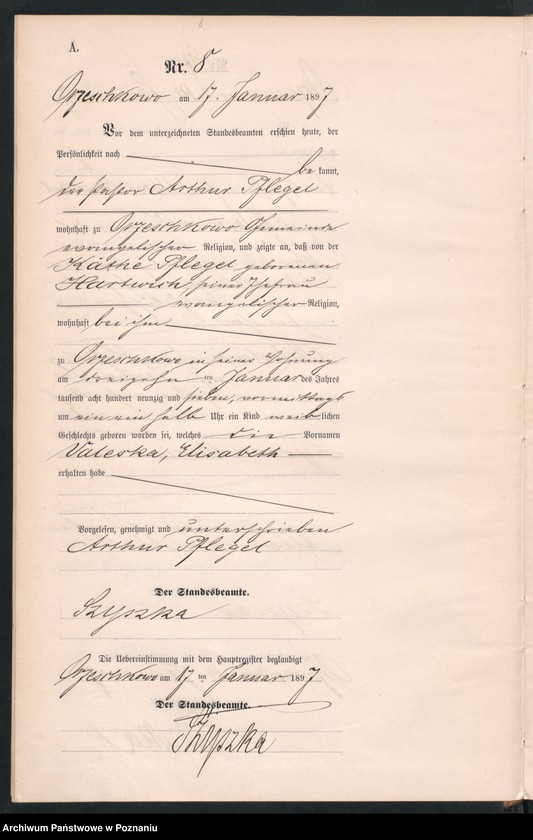 A.
Nr. 8
Orzeschkowo am 17. Januar 1897
Vor dem unterzeichneten Standesbeamten erschien heute, der
Persönlichkeit nach
bekannt,
der Pastor Arthur Pflegel
wohnhaft zu Orzeschkowo Gemeinde
evangelischer Religion, und zeigte an, daß von der
Käthe Pflegel geborenen
Hartwich, seiner Ehefrau
evangelischer Religion,
wohnhaft bei ihm
zu Orzeschkowo in seiner Wohnung
am dreizehn ten Januar des Jahres
tausend acht hundert neunzig und sieben, vormittags
um ein ein halb Uhr ein Kind weiblichen
Geschlechts geboren worden sei, welches die Vornamen
Valeska, Elisabeth
erhalten habe
Vorgelesen, genehmigt und unterschrieben
Arthur Pflegel
Der Standesbeamte.
Szyszka
Die Uebereinstimmung mit dem Hauptregister beglaubigt
Orzeschkowo am 17 ten Januar 1897
Der Standesbeamte.
Szyszka
Archiwum Państwowe w Poznaniu